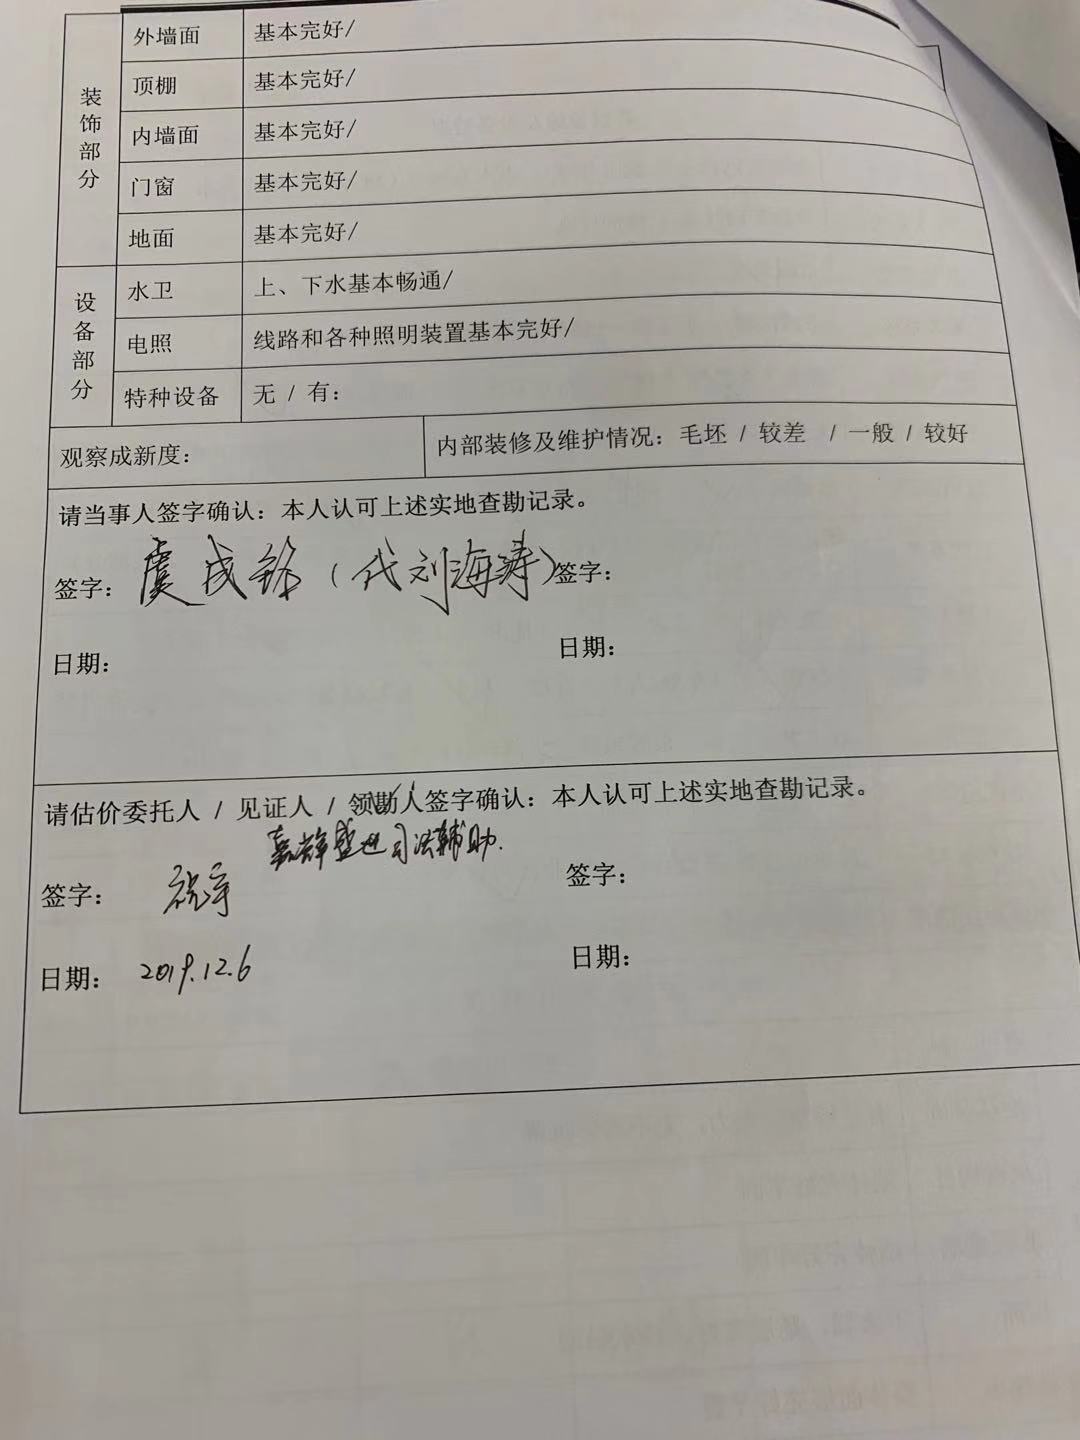 装饰部分
外墙面 基本完好/
顶棚 基本完好/
内墙面 基本完好/
门窗 基本完好/
地面 基本完好/
设备部分
水卫 上、下水基本畅通/
电照 线路和各种照明装置基本完好/
特种设备 无 / 有：
观察成新度： 内部装修及维护情况：毛坯 / 较差 / 一般 / 较好
请当事人签字确认：本人认可上述实地查勘记录。
签字： 虞成 （代刘海涛） 签字：
日期： 日期：
请估价委托人 / 见证人 / 领勘人签字确认：本人认可上述实地查勘记录。
司法辅助.
签字： 签字：
日期： 2019.12.6 日期：